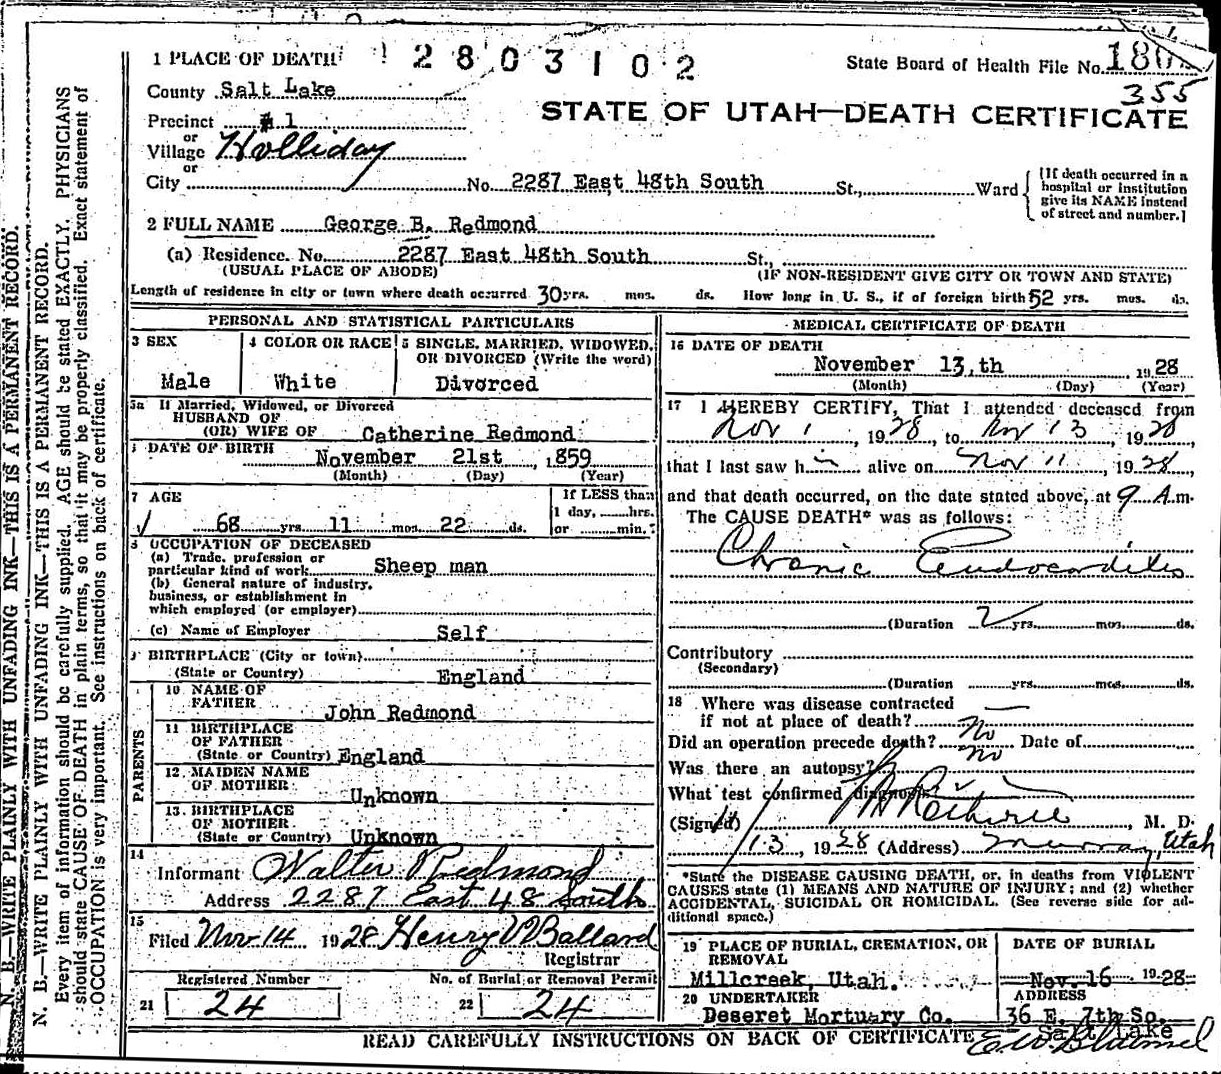 1 PLACE OF DEATH 2803102
State Board of Health File No.
355
County Salt Lake
STATE OF UTAH—DEATH CERTIFICATE
Precinct #1
or
Village Holliday
or
City No. 2287 East 48th South St., Ward
[If death occurred in a hospital or institution give its NAME instead of street and number.]
2 FULL NAME George B. Redmond
(a) Residence. No. 2287 East 48th South St.,
(USUAL PLACE OF ABODE) (IF NON-RESIDENT GIVE CITY OR TOWN AND STATE)
Length of residence in city or town where death occurred 30 yrs. mos. ds. How long in U. S., if of foreign birth 52 yrs. mos. ds.
PERSONAL AND STATISTICAL PARTICULARS
3 SEX
Male
4 COLOR OR RACE
White
5 SINGLE, MARRIED, WIDOWED,
OR DIVORCED (Write the word)
Divorced
5a If Married, Widowed, or Divorced
HUSBAND OF
(OR) WIFE OF Catherine Redmond
DATE OF BIRTH
November 21st, 1859
(Month) (Day) (Year)
7 AGE
68 yrs. 11 mos. 22 ds.
If LESS than
1 day, hrs.
or min.?
8 OCCUPATION OF DECEASED
(a) Trade, profession or
particular kind of work Sheep man
(b) General nature of industry,
business, or establishment in
which employed (or employer)
(c) Name of Employer Self
9 BIRTHPLACE (City or town)
(State or Country) England
PARENTS
10 NAME OF
FATHER John Redmond
11 BIRTHPLACE
OF FATHER
(State or Country) England
12. MAIDEN NAME
OF MOTHER Unknown
13. BIRTHPLACE
OF MOTHER
(State or Country) Unknown
14
Informant Walter Redmond
Address 2287 East 48 South
15
Filed Nov 14 1928 Henry V Ballard
Registrar
Registered Number No. of Burial or Removal Permit
21 24 22 24
MEDICAL CERTIFICATE OF DEATH
16 DATE OF DEATH
November 13,th 1928
(Month) (Day) (Year)
17 I HEREBY CERTIFY, That I attended deceased from
Nov 1, 1928, to Nov 13, 1928
that I last saw him alive on Nov 11, 1928,
and that death occurred, on the date stated above, at 9 A.m.
The CAUSE DEATH* was as follows:
Chronic Endocarditis
(Duration 2 yrs. mos. ds.
Contributory
(Secondary)
(Duration yrs. mos. ds.
18 Where was disease contracted
if not at place of death?
Did an operation precede death? No Date of
Was there an autopsy? No
What test confirmed diagnosis
(Signed) , M. D.
11/13, 1928 (Address) Murray, Utah
*State the DISEASE CAUSING DEATH, or, in deaths from VIOLENT
CAUSES state (1) MEANS AND NATURE OF INJURY; and (2) whether
ACCIDENTAL, SUICIDAL OR HOMICIDAL. (See reverse side for ad-
ditional space.)
19 PLACE OF BURIAL, CREMATION, OR
REMOVAL
Millcreek, Utah.
DATE OF BURIAL
Nov. 16 1928
20 UNDERTAKER
Deseret Mortuary Co.
ADDRESS
36 E. 7th So.
Salt Lake
READ CAREFULLY INSTRUCTIONS ON BACK OF CERTIFICATE
N. B.—WRITE PLAINLY WITH UNFADING INK—THIS IS A PERMANENT RECORD.
N. B.—WRITE PLAINLY WITH UNFADING INK—THIS IS A PERMANENT RECORD.
Every item of information should be carefully supplied. AGE should be stated EXACTLY. PHYSICIANS
should state CAUSE OF DEATH in plain terms, so that it may be properly classified. Exact statement of
OCCUPATION is very important. See instructions on back of certificate.